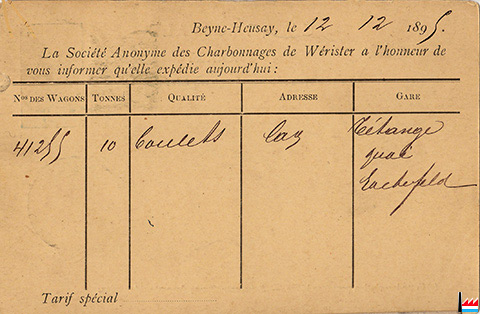 Beyne-Heusay, le 12 12 1895.
La Société Anonyme des Charbonnages de Wérister a l'honneur de
vous informer qu'elle expédie aujourd'hui :
Nos DES WAGONS TONNES QUALITÉ ADRESSE GARE
41255 10 Boulets
quai
Tarif spécial